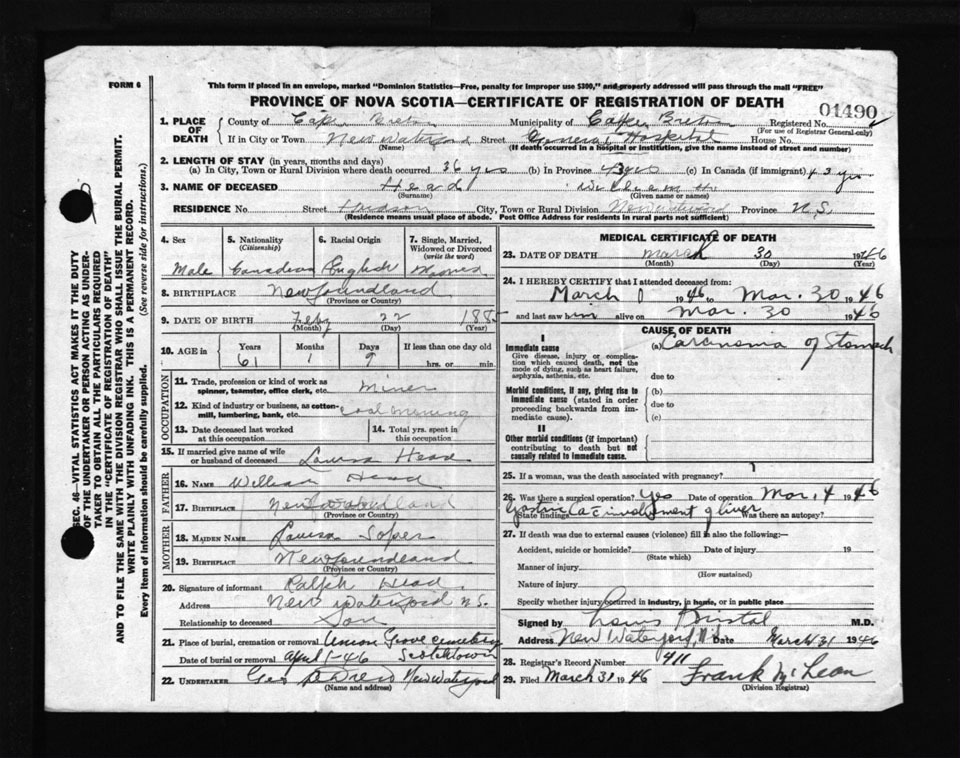 FORM 6
This form if placed in an envelope, marked "Dominion Statistics—Free, penalty for improper use $300," and properly addressed will pass through the mail "FREE"
PROVINCE OF NOVA SCOTIA—CERTIFICATE OF REGISTRATION OF DEATH
01490
1. PLACE OF DEATH County of Cape Breton Municipality of Cape Breton Registered No.
(For use of Registrar General only)
If in City or Town New Waterford Street General Hospital House No.
(Name) (If death occurred in a hospital or institution, give the name instead of street and number)
2. LENGTH OF STAY (in years, months and days)
(a) In City, Town or Rural Division where death occurred 36 yrs (b) In Province 43 yrs (c) In Canada (if immigrant) 43 yrs
3. NAME OF DECEASED Head William
(Surname) (Given name or names)
RESIDENCE No. Street Hudson City, Town or Rural Division New Waterford Province N.S.
(Residence means usual place of abode. Post Office Address for residents in rural parts not sufficient)
4. Sex 5. Nationality (Citizenship) 6. Racial Origin 7. Single, Married, Widowed or Divorced (write the word)
Male Canadian English
8. BIRTHPLACE Newfoundland
(Province or Country)
9. DATE OF BIRTH Feby 22 1885
(Month) (Day) (Year)
10. AGE in Years Months Days If less than one day old
61 1 9 hrs. or min.
OCCUPATION
11. Trade, profession or kind of work as spinner, teamster, office clerk, etc. Miner
12. Kind of industry or business, as cotton-mill, lumbering, bank, etc. coal mining
13. Date deceased last worked at this occupation
14. Total yrs. spent in this occupation
15. If married give name of wife or husband of deceased Laura Head
FATHER
16. NAME William Head
17. BIRTHPLACE Newfoundland
(Province or Country)
MOTHER
18. MAIDEN NAME Louisa Soper
19. BIRTHPLACE Newfoundland
(Province or Country)
20. Signature of informant Ralph Head
Address New Waterford N.S.
Relationship to deceased Son
21. Place of burial, cremation or removal Union Grove Cemetery
Date of burial or removal April 1-46 Scotchtown
22. UNDERTAKER Geo New Waterford
(Name and address)
MEDICAL CERTIFICATE OF DEATH
23. DATE OF DEATH March 30 1946
(Month) (Day) (Year)
24. I HEREBY CERTIFY that I attended deceased from:
March 1 1946 to Mar. 30 1946
and last saw him alive on Mar. 30 1946
CAUSE OF DEATH
I
Immediate cause (a) Carcinoma of Stomach
Give disease, injury or complication which caused death, not the mode of dying, such as heart failure, asphyxia, asthenia, etc. due to
Morbid conditions, if any, giving rise to immediate cause (stated in order proceeding backwards from immediate cause). (b)
due to
(c)
II
Other morbid conditions (if important) contributing to death but not causally related to immediate cause.
25. If a woman, was the death associated with pregnancy?
26. Was there a surgical operation? Yes Date of operation Mar. 14 1946
State findings Gastric Ca c involvement of liver Was there an autopsy?
27. If death was due to external causes (violence) fill in also the following:—
Accident, suicide or homicide? Date of injury 19
(State which)
Manner of injury
(How sustained)
Nature of injury
Specify whether injury occurred in industry, in home, or in public place
Signed by Louis Bristol M.D.
Address New Waterford, N.S. Date March 31 1946
28. Registrar's Record Number 411
29. Filed March 31 1946 Frank McLean
(Division Registrar)
SEC. 46—VITAL STATISTICS ACT MAKES IT THE DUTY
OF THE UNDERTAKER OR PERSON ACTING AS UNDER-
TAKER TO OBTAIN ALL THE PARTICULARS REQUIRED
IN THE "CERTIFICATE OF REGISTRATION OF DEATH"
AND TO FILE THE SAME WITH THE DIVISION REGISTRAR WHO SHALL ISSUE THE BURIAL PERMIT.
WRITE PLAINLY WITH UNFADING INK. THIS IS A PERMANENT RECORD.
Every item of information should be carefully supplied. (See reverse side for instructions.)